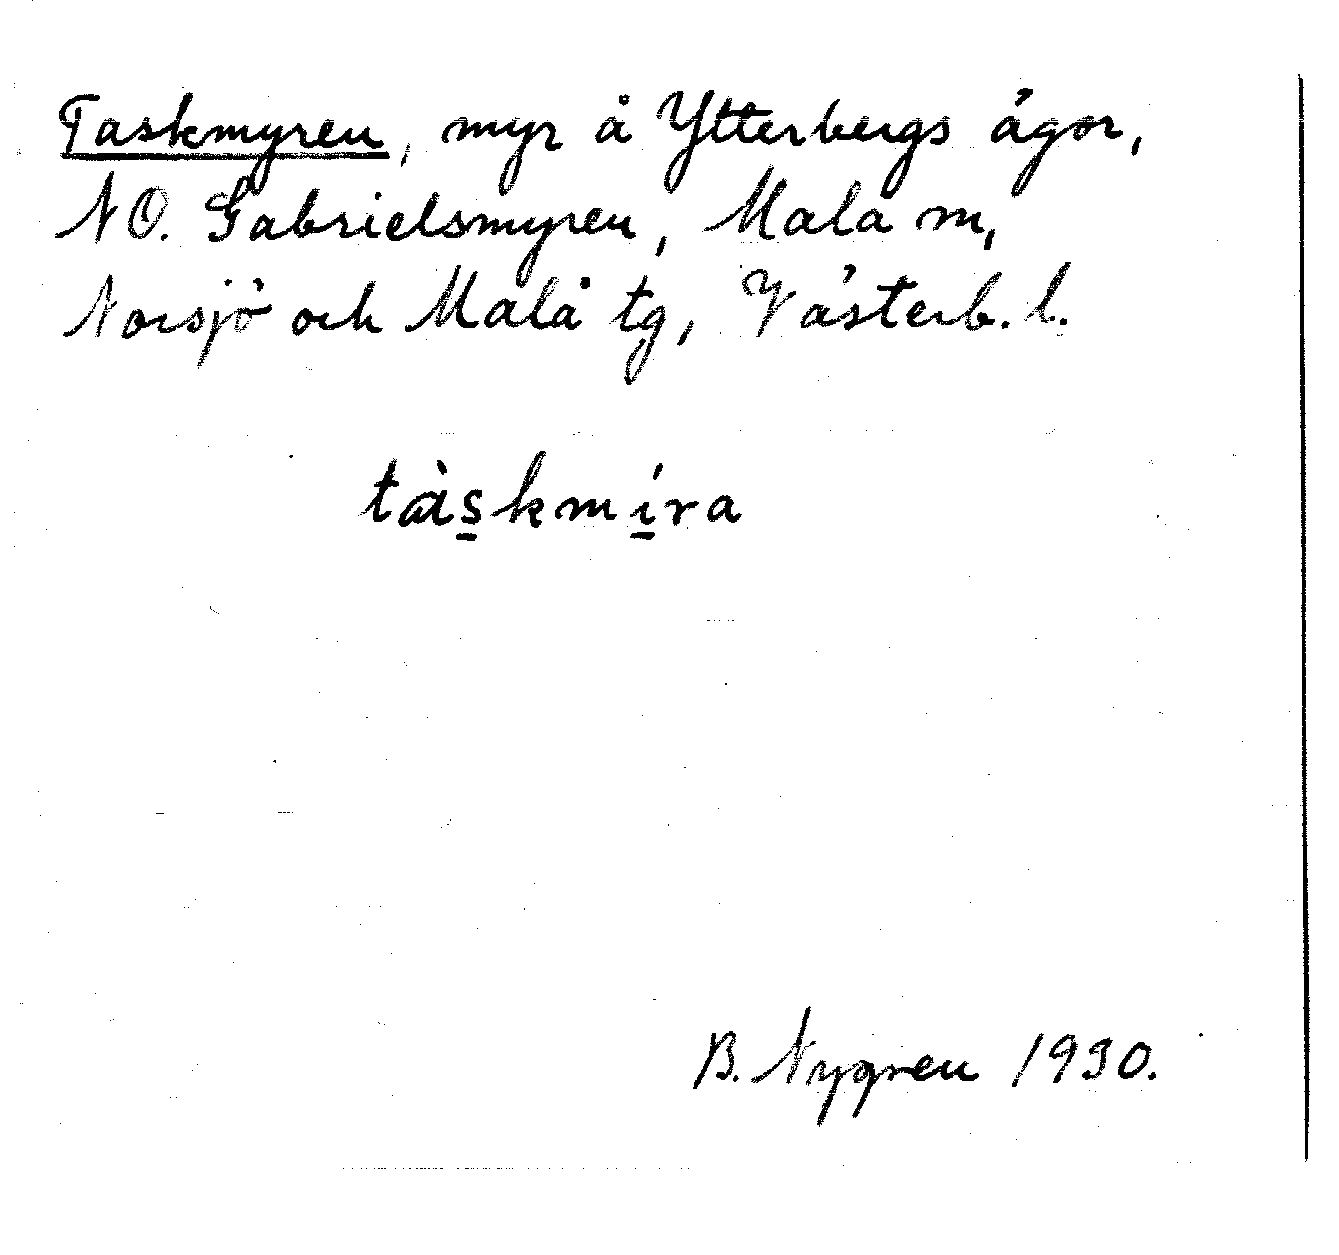 Taskmyren, myr å Ytterbergs ägor,
NO. Gabrielsmyren, Malå m,
Norsjö och Malå tg, Västerb. l.
tàs̱kmí̱ra
B. Nygren 1930.